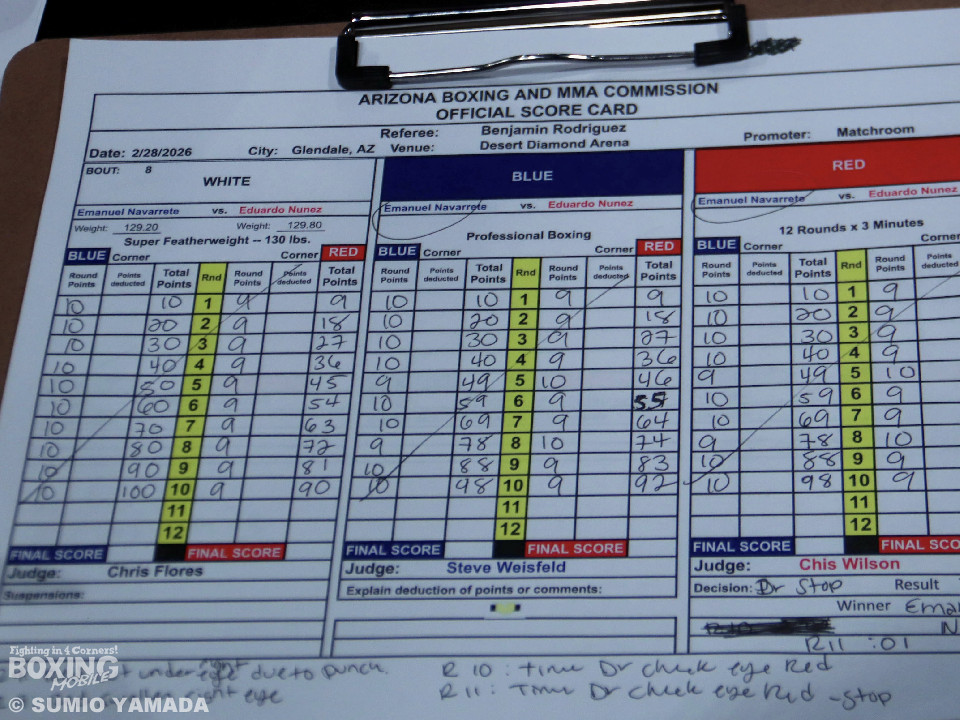 ARIZONA BOXING AND MMA COMMISSION
OFFICIAL SCORE CARD
Referee: Benjamin Rodriguez Promoter: Matchroom
Date: 2/28/2026 City: Glendale, AZ Venue: Desert Diamond Arena
BOUT: 8
WHITE BLUE RED
Emanuel Navarrete vs. Eduardo Nunez Emanuel Navarrete vs. Eduardo Nunez Emanuel Navarrete vs. Eduardo Nunez
Weight: 129.20 Weight: 129.80
Super Featherweight -- 130 lbs. Professional Boxing 12 Rounds x 3 Minutes
BLUE Corner Corner RED BLUE Corner Corner RED BLUE Corner Corner
Round Points Points deducted Total Points Rnd Round Points Points deducted Total Points Round Points Points deducted Total Points Rnd Round Points Points deducted Total Points Round Points Points deducted Total Points Rnd Round Points Points deducted
10 10 1 9 9 10 10 1 9 9 10 10 1 9
10 20 2 9 18 10 20 2 9 18 10 20 2 9
10 30 3 9 27 10 30 3 9 27 10 30 3 9
10 40 4 9 36 10 40 4 9 36 10 40 4 9
10 50 5 9 45 9 49 5 10 46 9 49 5 10
10 60 6 9 54 10 59 6 9 55 10 59 6 9
10 70 7 9 63 10 69 7 9 64 10 69 7 9
10 80 8 9 72 9 78 8 10 74 9 78 8 10
10 90 9 9 81 10 88 9 9 83 10 88 9 9
10 100 10 9 90 10 98 10 9 92 10 98 10 9
11 11 11
12 12 12
FINAL SCORE FINAL SCORE FINAL SCORE FINAL SCORE FINAL SCORE FINAL SCO
Judge: Chris Flores Judge: Steve Weisfeld Judge: Chis Wilson
Suspensions: Explain deduction of points or comments: Decision: Dr Stop Result
Winner Ema
N
R11 :01
under eye due to punch. R 10 : Time Dr check eye Red
right eye R 11 : Time Dr check eye Red - stop
Fighting in 4 Corners!
BOXING
MOBILE
© SUMIO YAMADA